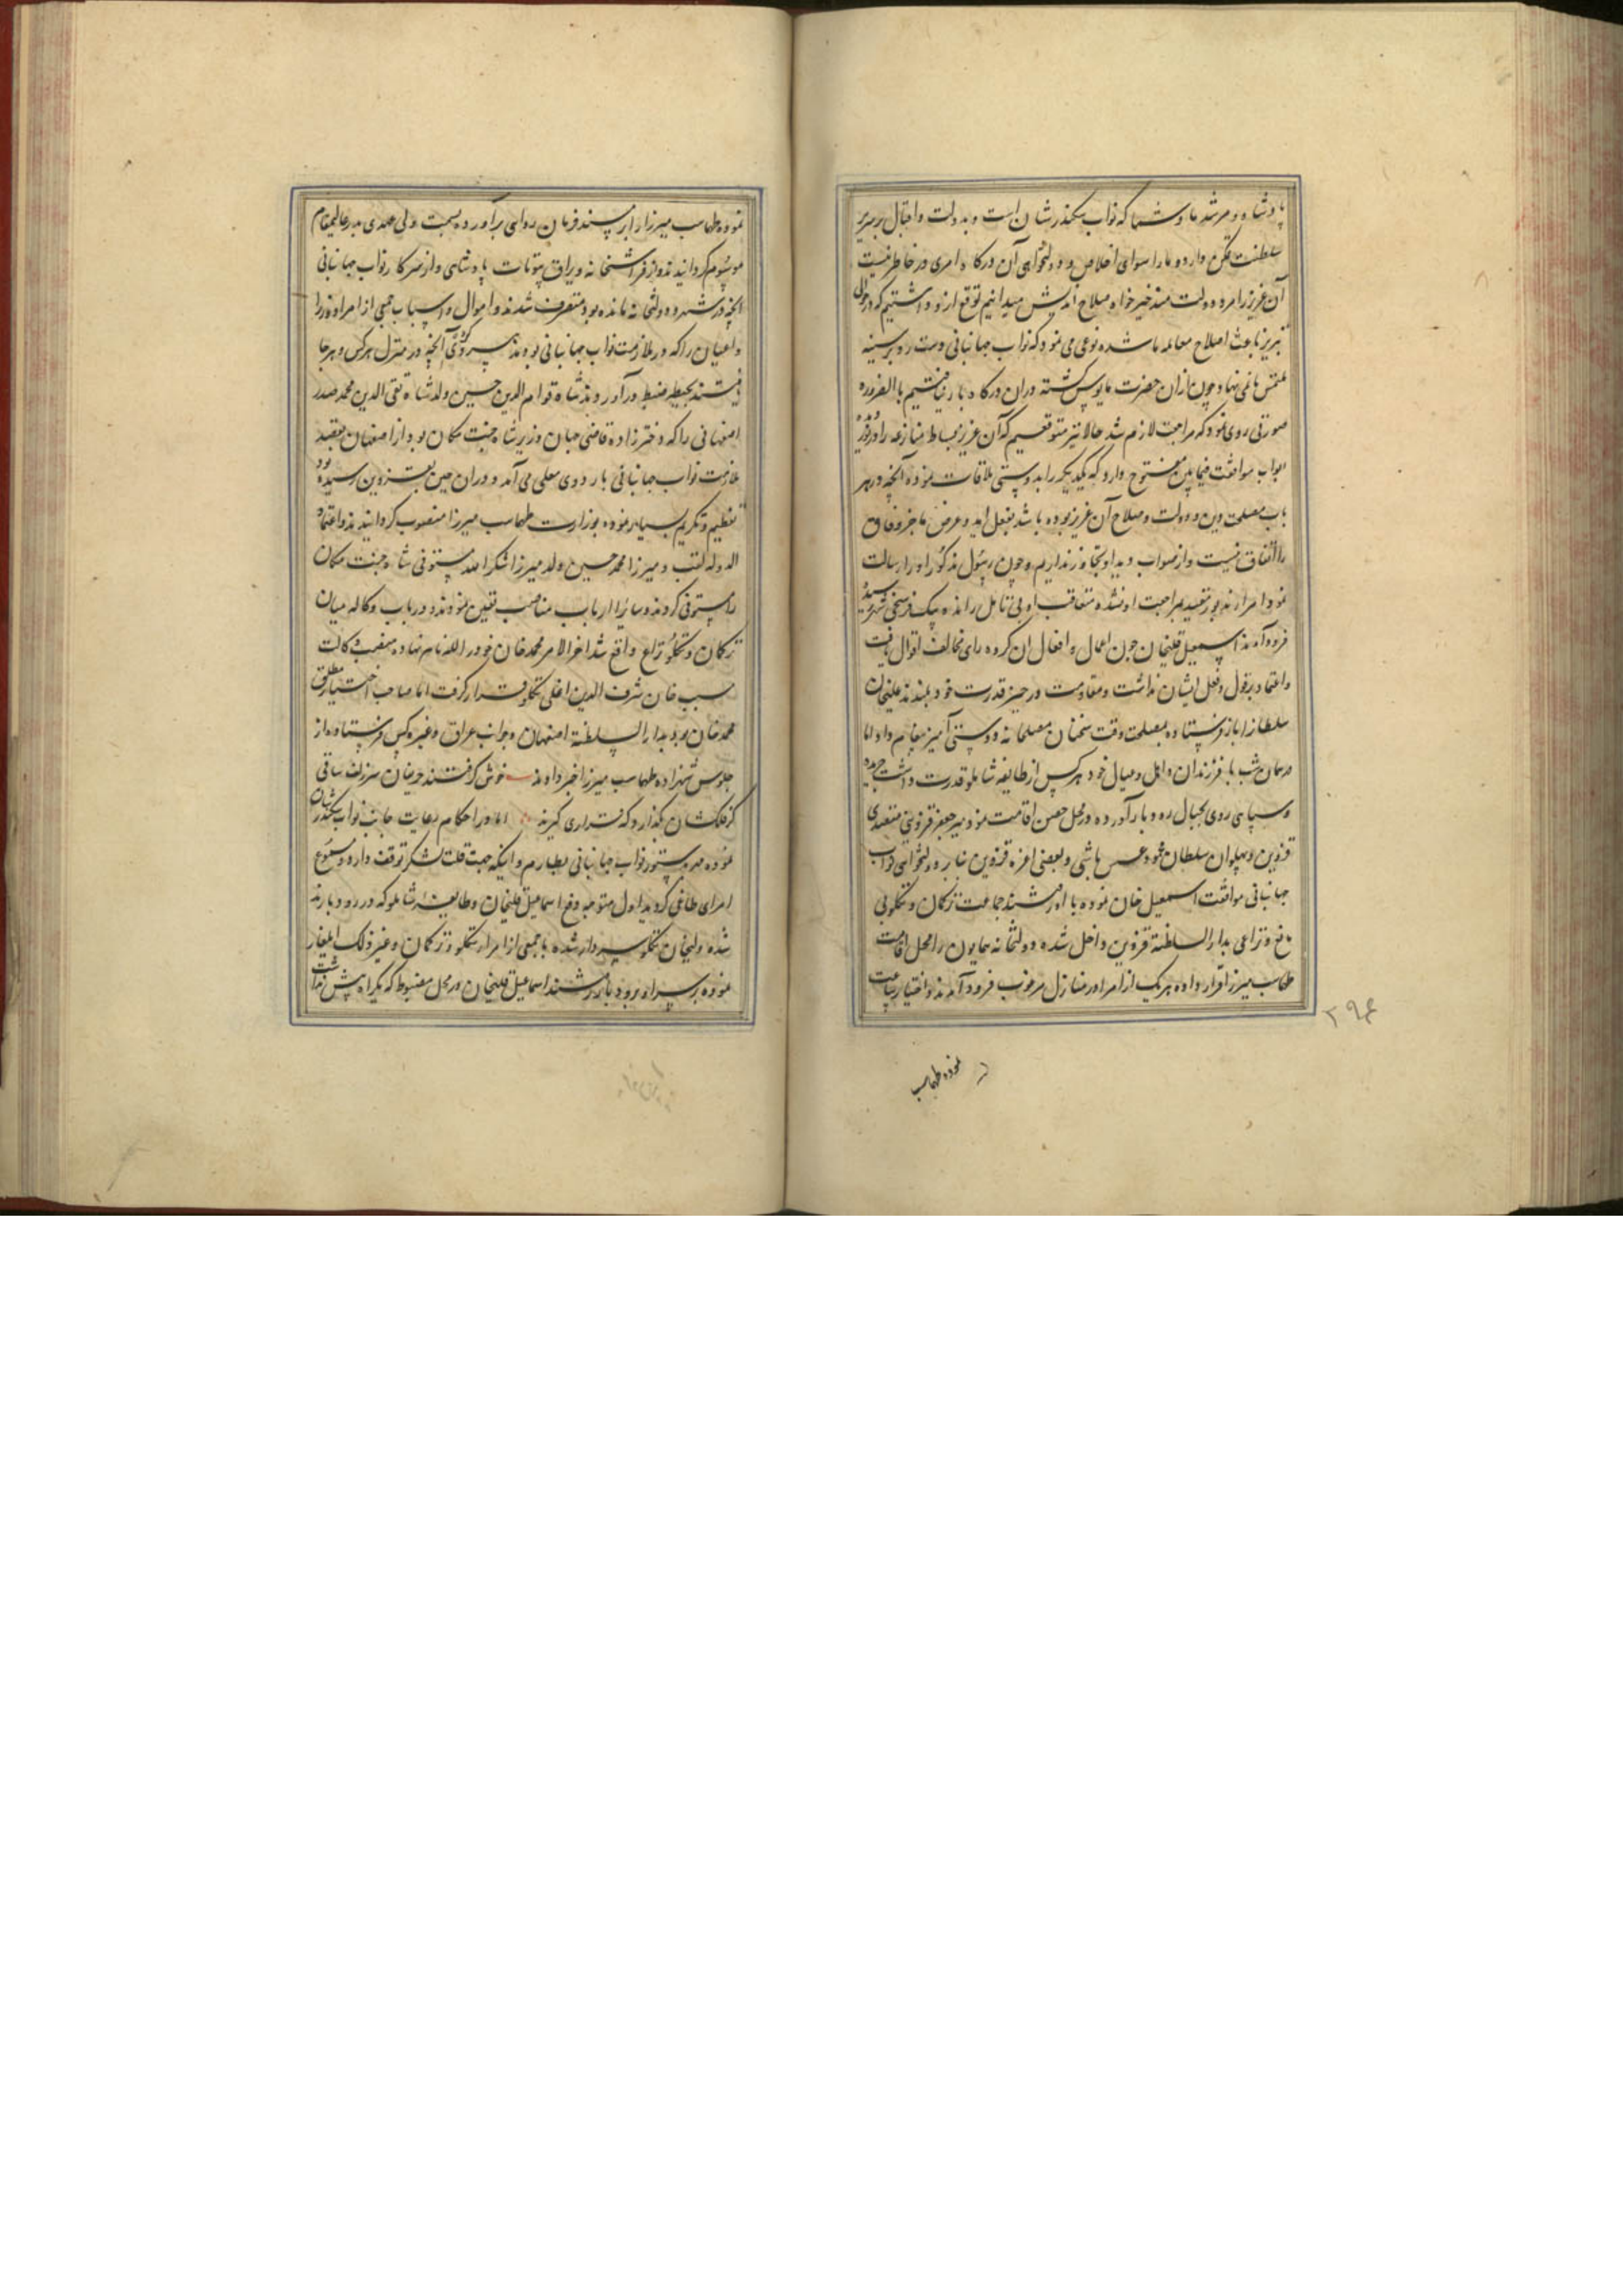 پادشاه و مرشد ما و شما که نواب سکندرشان است و بدولت و اقبال بر سریر
سلطنت تمکن دارد و ما را سوای اخلاص و دولتخواهی آن درگاه امری در خاطر نیست
آن عزیز را مرد دولت مند خیرخواه صلاح اندیش میدانیم توقع ازو داشتیم که در حوالی
تبریز باعث اصلاح معامله ما شده نوعی می نمود که نواب جهانبانی دست رد بر سینه
ملتمس ما نمی نهاد و چون ازان حضرت مایوس گشته دران درگاه بار نیافتیم بالضروره
صورتی روی نمود که مراجعت لازم شد حالا نیز متوقعیم که آن عزیز بساط منازعه را در نوردیده
ابواب موافقت فیمابین مفتوح دارد که یکدیگر را بدوستی ملاقات نموده آنچه در هر
باب مصلحت دین و دولت و صلاح آن عزیز بوده باشد بفعل اید و غرض ما جز وفاق
و اتفاق نیست و از صواب دید او تجاوز نداریم و چون رسول مذکور اداء رسالت
نمود امرا زیاد مقید بمراجعت او نشده متعاقب او بی تامل رانده بیک فرسخی شهر رسیده
فرود آمدند اسمعیل قلیخان چون اعمال و افعال ان گروه رای مخالف اقوال یافت
و اعتماد بر قول و فعل ایشان نداشت و مقاومت در حیز قدرت خود ندید علیخان
سلطانرا باز فرستاده بمصلحت وقت سخنان مصلحانه و دوستی آمیز پیغام داد اما
در همان شب با فرزندان و اهل و عیال خود هر کس از طایفه شاملو قدرت داشت جریده
و سپاهی روی بجبال رودبار آورده در محل حصین اقامت نمود میر جعفر قزوینی متصدی
قزوین و پهلوان سلطان محمود عسس باشی و بعضی اعزه قزوین بنا بر دولتخواهی نواب
جهانبانی موافقت اسمعیل خان نموده با او رفتند جماعت ترکمان و تکلو بی
مانع و نزاعی بدار السلطنة قزوین داخل شده دولتخانه همایون را محل اقامت
طهماسب میرزا قرار داده هر یک از امرا در منازل مرغوب فرود آمدند و اختیار ساعت
۲۹۴
نموده طهماسب
نموده طهماسب میرزا را بر مسند فرمان روائی برآورده بسمت ولی عهدی پدر عالیمقام
موسوم گردانیدند و از فراشخانه و یراق بیوتات پادشاهی و از سرکار نواب جهانبانی
انچه در شهر و دولتخانه مانده بود متصرف شدند و اموال و اسباب جمعی از امرا و وزرا
و اعیان را که در ملازمت نواب جهانبانی بودند سرکرده آنچه در منزل هر کس و هر جا
یافتند بحیطه ضبط درآوردند شاه قوام الدین حسین ولد شاه تقی الدین محمد صدر
اصفهانی را که دخترزاده قاضی جهان وزیر شاه جنت مکان بود از اصفهان بقصد
ملازمت نواب جهانبانی باردوی معلی می آمد و دران حین بقزوین رسیده بود
تعظیم و تکریم بسیار نموده بوزارت طهماسب میرزا منصوب گردانیدند و اعتماد
الدوله لقب و میرزا محمد حسین ولد میرزا شکرالله مستوفی شاه جنت مکان
را مستوفی کردند و سائرا ارباب مناصب تعیین نمودند و در باب وکاله میان
ترکمان و تکلو نزاع واقع شد اخر الامر محمد خان خود را لله نام نهاده منصب وکالت
مسیب خان شرف الدین اغلی تکلو قرار گرفت اما صاحب اختیار مطلق
محمد خان بود بدار السلطنة اصفهان و جوانب عراق و غیره کس فرستاده از
جلوس شهزاده طهماسب میرزا خبر دادند خوش گرفتند حریفان سر زلف ساقی
گر فلکشان بگذارد که قراری گیرند اما در احکام رعایت جانب نواب سکندرشان
نموده بدستور نواب جهانبانی بطارم و اینکه جهت قلت لشکر توقف دارد مسموع
امرای طاغی گردید اول متوجه دفع اسماعیل قلیخان و طایفه شاملو که در رودبارند
شده ولیخان تکلو سردار شده با جمعی از امراء تکلو و ترکمان و غیر ذلک ایلغار
نموده بر سر او برودبار رفتند اسماعیل قلیخان در محل مضبوط که یکراه بیش نداشت